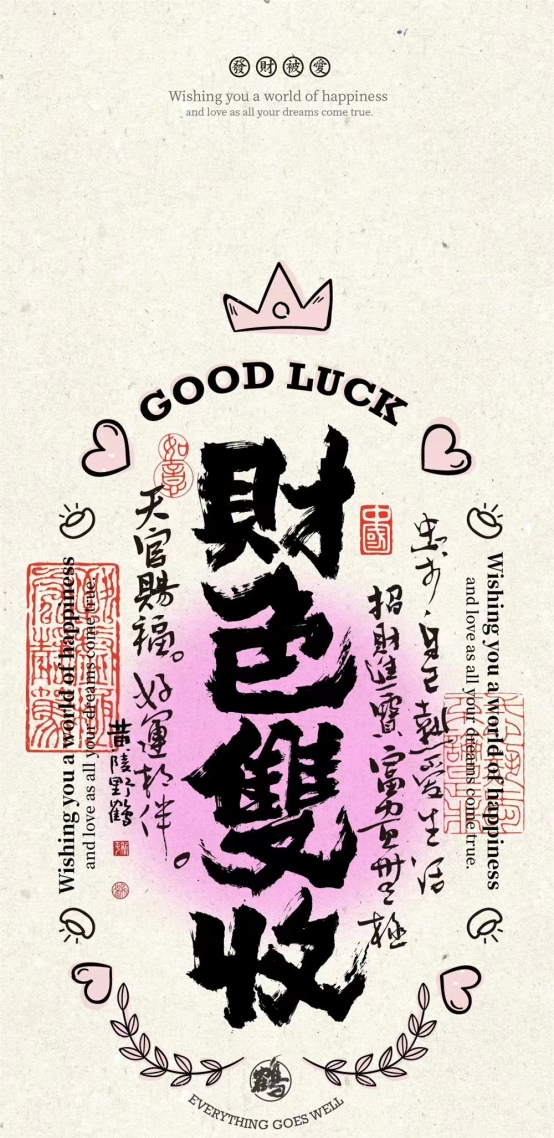 發財被愛
Wishing you a world of happiness
and love as all your dreams come true.
GOOD LUCK
財色雙收
忠於自己熱愛生活
招財進寶富貴無極
天官賜福。好運相伴。
黄陵野鶴
如意
中國
Wishing you a world of happiness
and love as all your dreams come true.
Wishing you a world of happiness
and love as all your dreams come true.
鶴
EVERYTHING GOES WELL